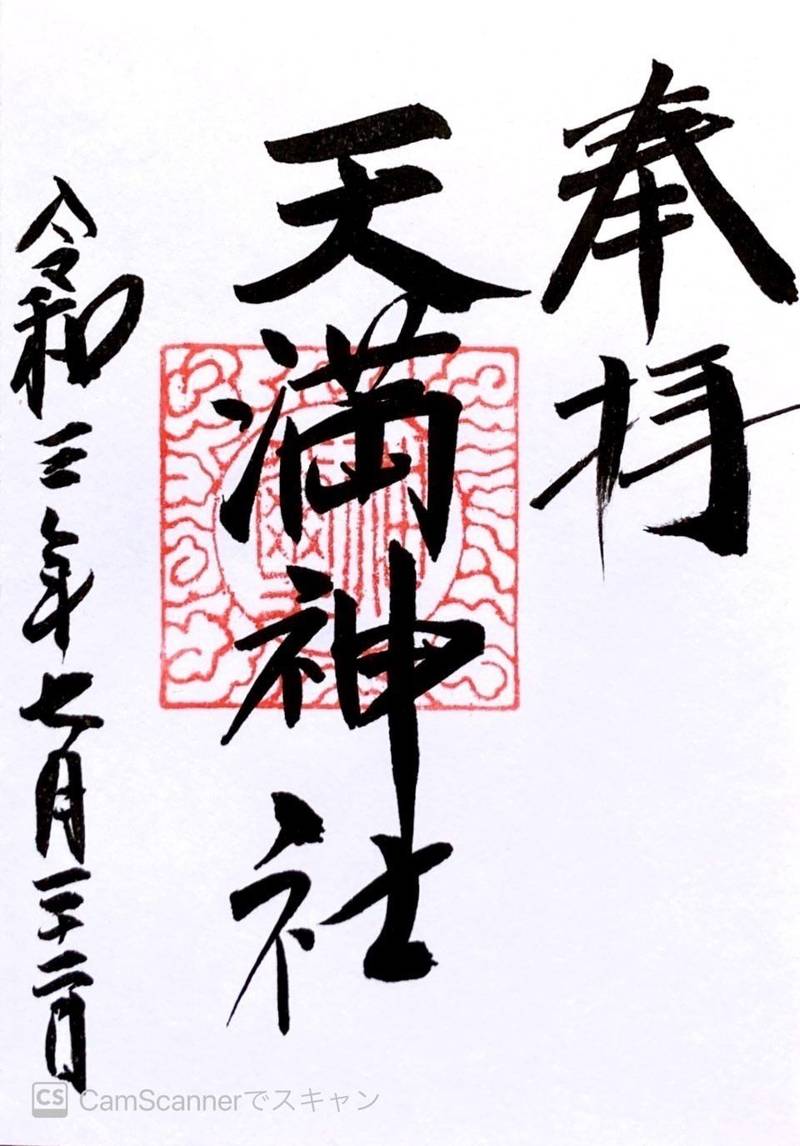 奉拝
天満神社
令和三年七月二十二日
CS CamScannerでスキャン